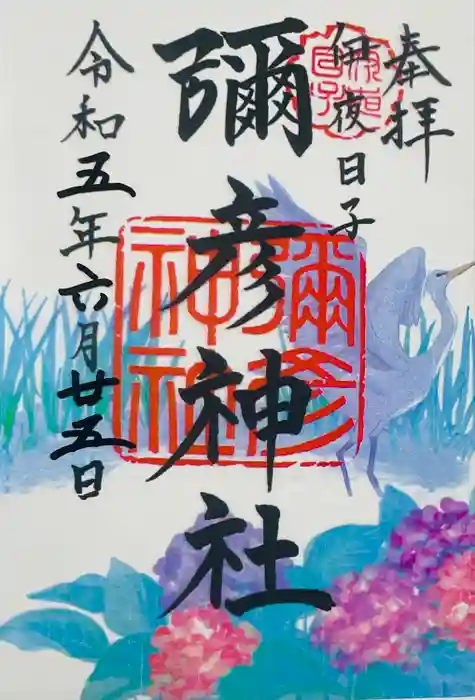 奉拝
伊夜日子
彌彦神社
令和五年六月廿五日
彌彦神社